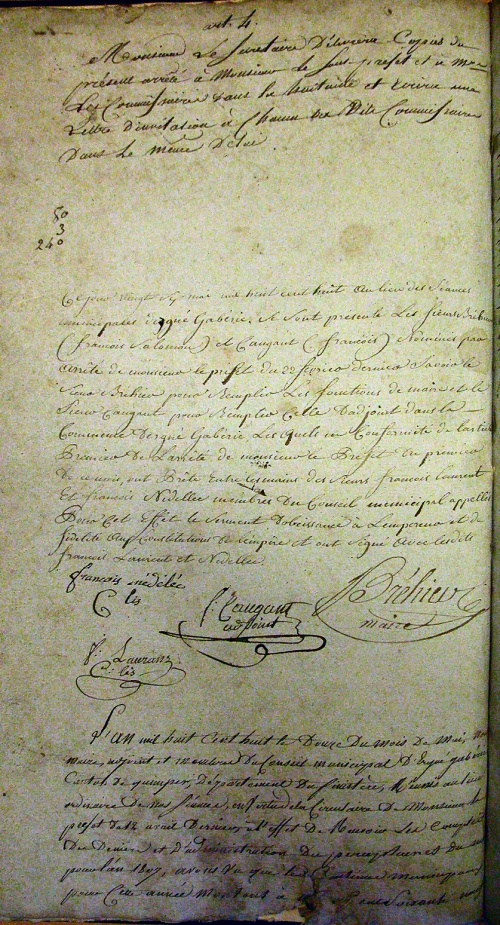 art. 4.
Monsieur Le Secretaire Délivrera Copies du
présent arrêté à Monsieur le Sous préfet et à
Les Commissaires dans la huitaine et écrira une
Lettre d'invitasion à Chacun des Dits Commissaires
Dans le même Délai.
80
3
240
Ce jour vingt mai mil huit cent huit au lieu des Séances
municipales d'ergué Gabéric, Se Sont presenté Les Sieurs Bréhier
(francois Salomon) et Caugant (francois) Nommés par
arrêté de monsieur le préfet du 22 fevrier dernier Savoir le
Sieur Bréhier pour Remplir Les fonctions de maire et le
Sieur Caugant pour Remplir Celle Dadjoint dans la
Commune Dergué Gabéric Les quels en Conformité de
Premier De Larrêté de monsieur le Préfet Du premier
De ce mois, ont Prêté Entre les mains des Sieurs francois Laurent
Et francois Nédellec membres Du Conseil municipal appellés
Pour Cet Effet le Serment Dobeissance à Lempereur et de
fidélité aux Constitutions de Lempire et ont Signé avec lesdits
francois Laurent et Nédellec.
francois nédélec
f. Caugant
adjoint
Bréhier
maire
f. Laurans
L'an mil huit Cent huit le Douze Du mois De Mai, Nous
maire, adjoint et membres Du Conseil municipal D'Ergué gabéric
Canton De quimper, Département Du finistère, Réunis au lieu
ordinaire De nos Séances, en Vertu de la Circulaire De Monsieur le
préfet avril Dernier, à l'Effet De Recevoir Les Comptes
De Deniers Et D'administration Du percepteur et Du
pour l'an 1807, avons Vu que les Centimes municipaux
pour Cette année Montent à Soixante